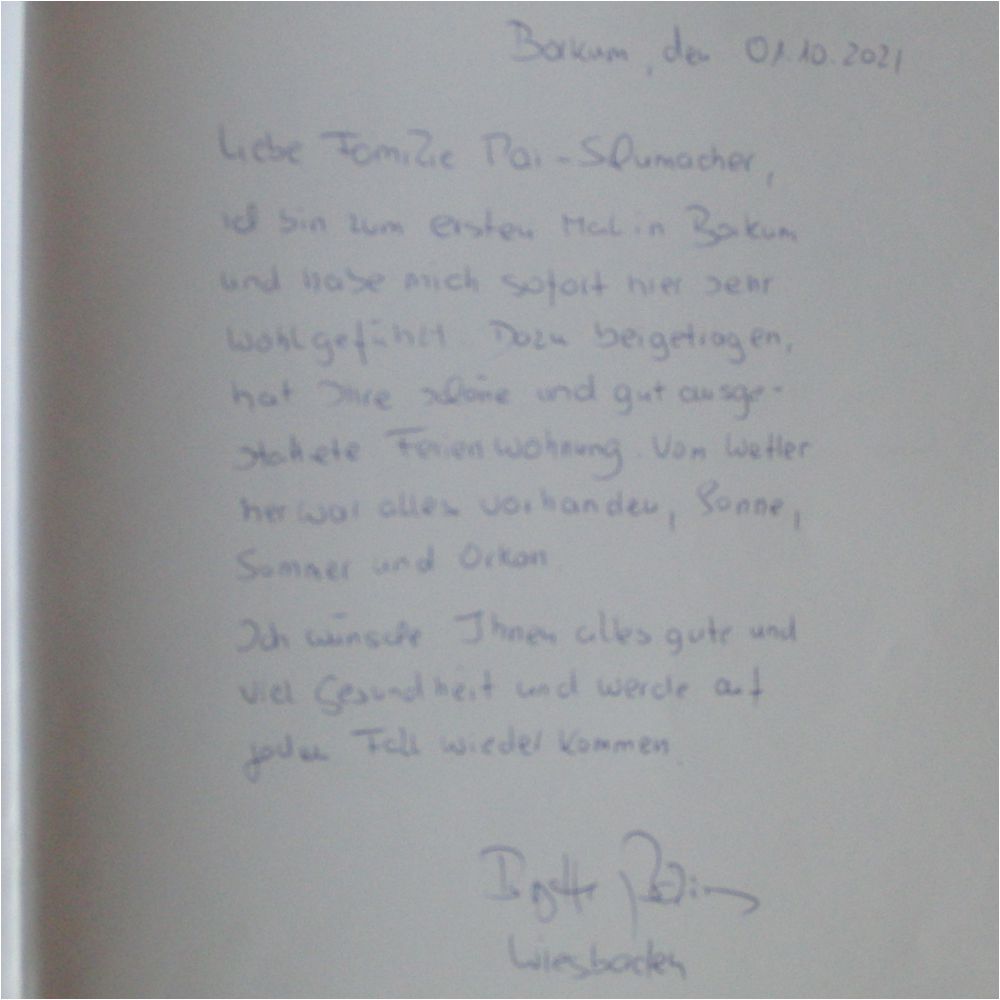 Borkum, den 01.10.2021
Liebe Familie Mai-Schumacher,
ich bin zum ersten Mal in Borkum
und habe mich sofort hier sehr
wohlgefühlt. Dazu beigetragen,
hat Ihre schöne und gut ausge-
stattete Ferienwohnung. Vom Wetter
her war alles vorhanden, Sonne,
Sommer und Orkan
Ich wünsche Ihnen alles gute und
viel Gesundheit und werde auf
jeden Fall wieder kommen.
Wiesbaden